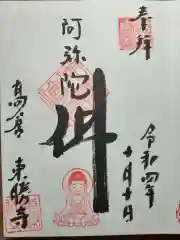 奉拝
令和四年
十月十日
阿弥陀
仏
高倉
東勝寺